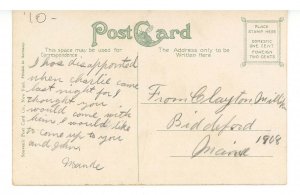 '10-
POST CARD
PLACE
STAMP HERE
DOMESTIC
ONE CENT
FOREIGN
TWO CENTS
This space may be used for
Correspondence
The Address only to be
Written Here
I was disappointed
when charlie came
last night for I
thought you
would come with
him I would like
to come up to you
and John
Maude
From Clayton
Biddeford
Maine 1908
Souvenir Post Card Co. New York